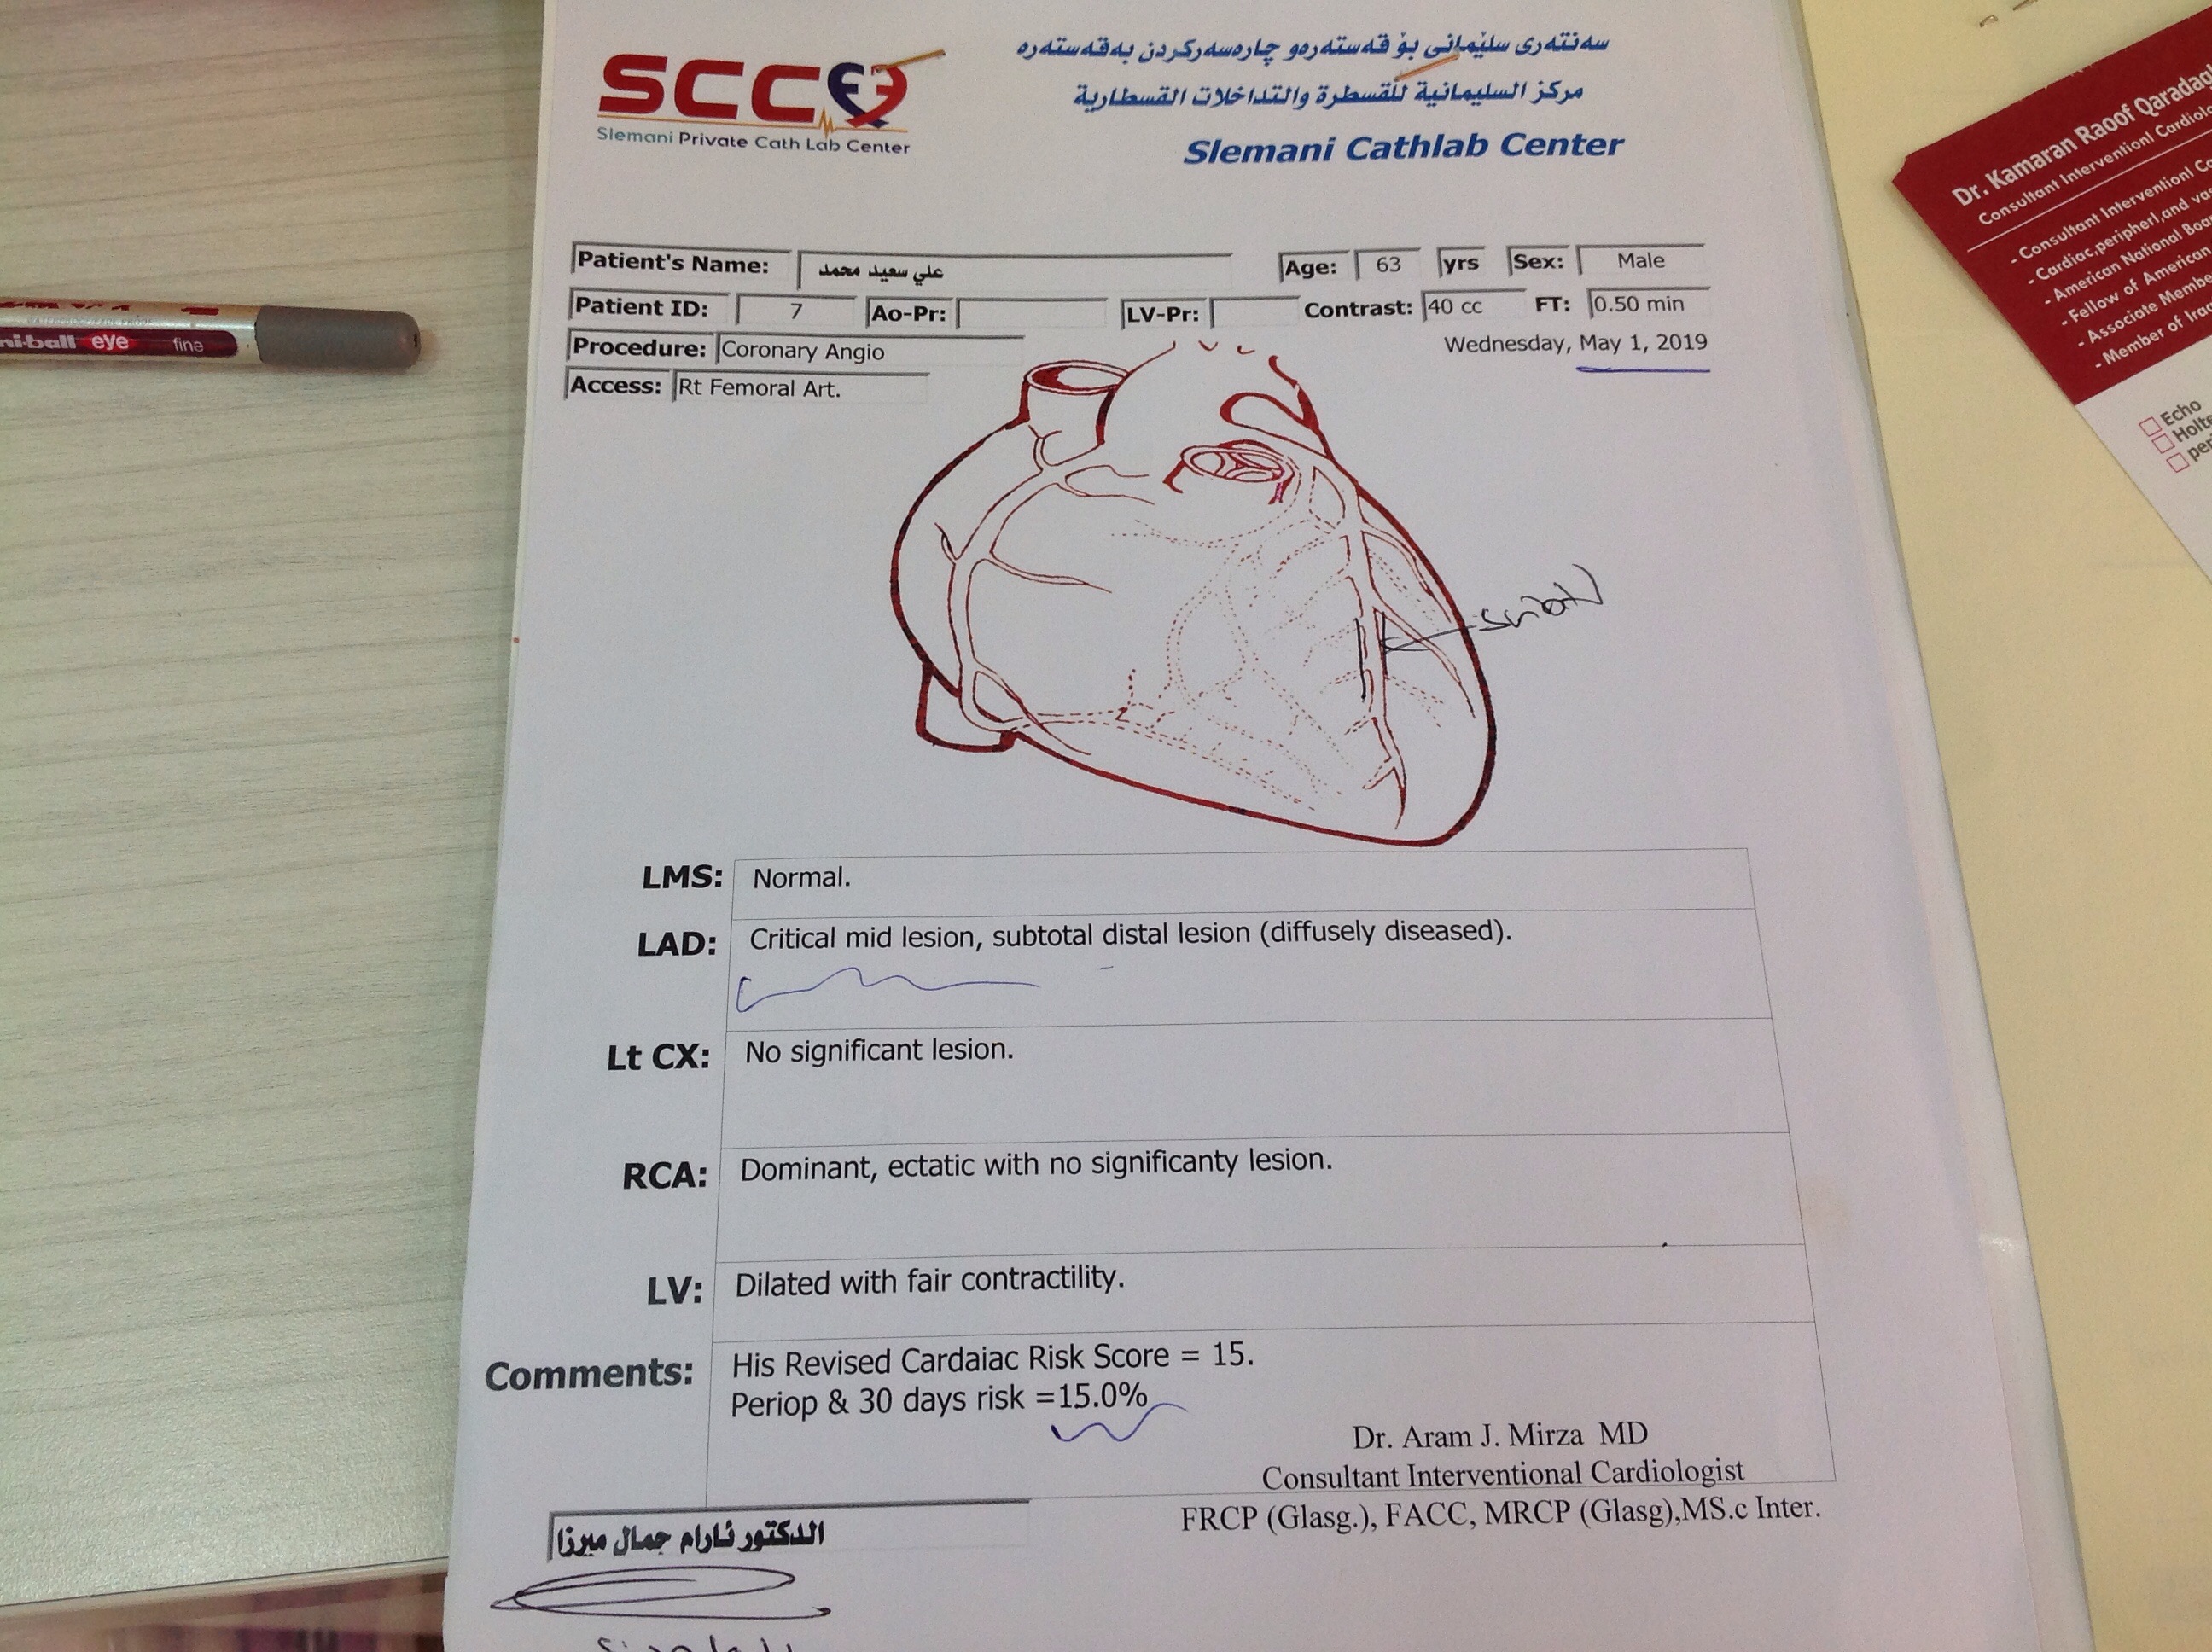 SCC
Slemani Private Cath Lab Center
سەنتەری سلێمانی بۆ قەستەرەو چارەسەرکردن بەقەستەرە
مركز السليمانية للقسطرة والتداخلات القسطارية
Slemani Cathlab Center
Patient's Name: علي سعيد محمد Age: 63 yrs Sex: Male
Patient ID: 7 Ao-Pr: LV-Pr: Contrast: 40 cc FT: 0.50 min
Procedure: Coronary Angio Wednesday, May 1, 2019
Access: Rt Femoral Art.
LMS: Normal.
LAD: Critical mid lesion, subtotal distal lesion (diffusely diseased).
Lt CX: No significant lesion.
RCA: Dominant, ectatic with no significanty lesion.
LV: Dilated with fair contractility.
Comments: His Revised Cardaiac Risk Score = 15.
Periop & 30 days risk =15.0%
Dr. Aram J. Mirza MD
Consultant Interventional Cardiologist
FRCP (Glasg.), FACC, MRCP (Glasg),MS.c Inter.
الدكتور ئارام جمال ميرزا
ni-ball eye fine
Dr. Kamaran Raoof
Consultant Interventionl
- Consultant Interventionl
- Cardiac,peripherl,and
- American National
- Fellow of American
- Associate
- Member of
Echo